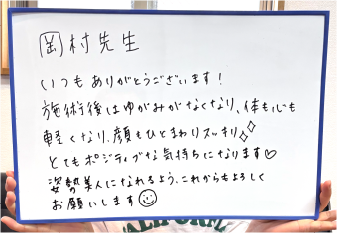 岡村先生
いつもありがとうございます!
施術後はゆがみがなくなり、体も心も
軽くなり、顔もひとまわりスッキリ✧✧
とてもポジティブな気持ちになります♡
姿勢美人になれるよう、これからもよろしく
お願いします☺
CALIFORNIA